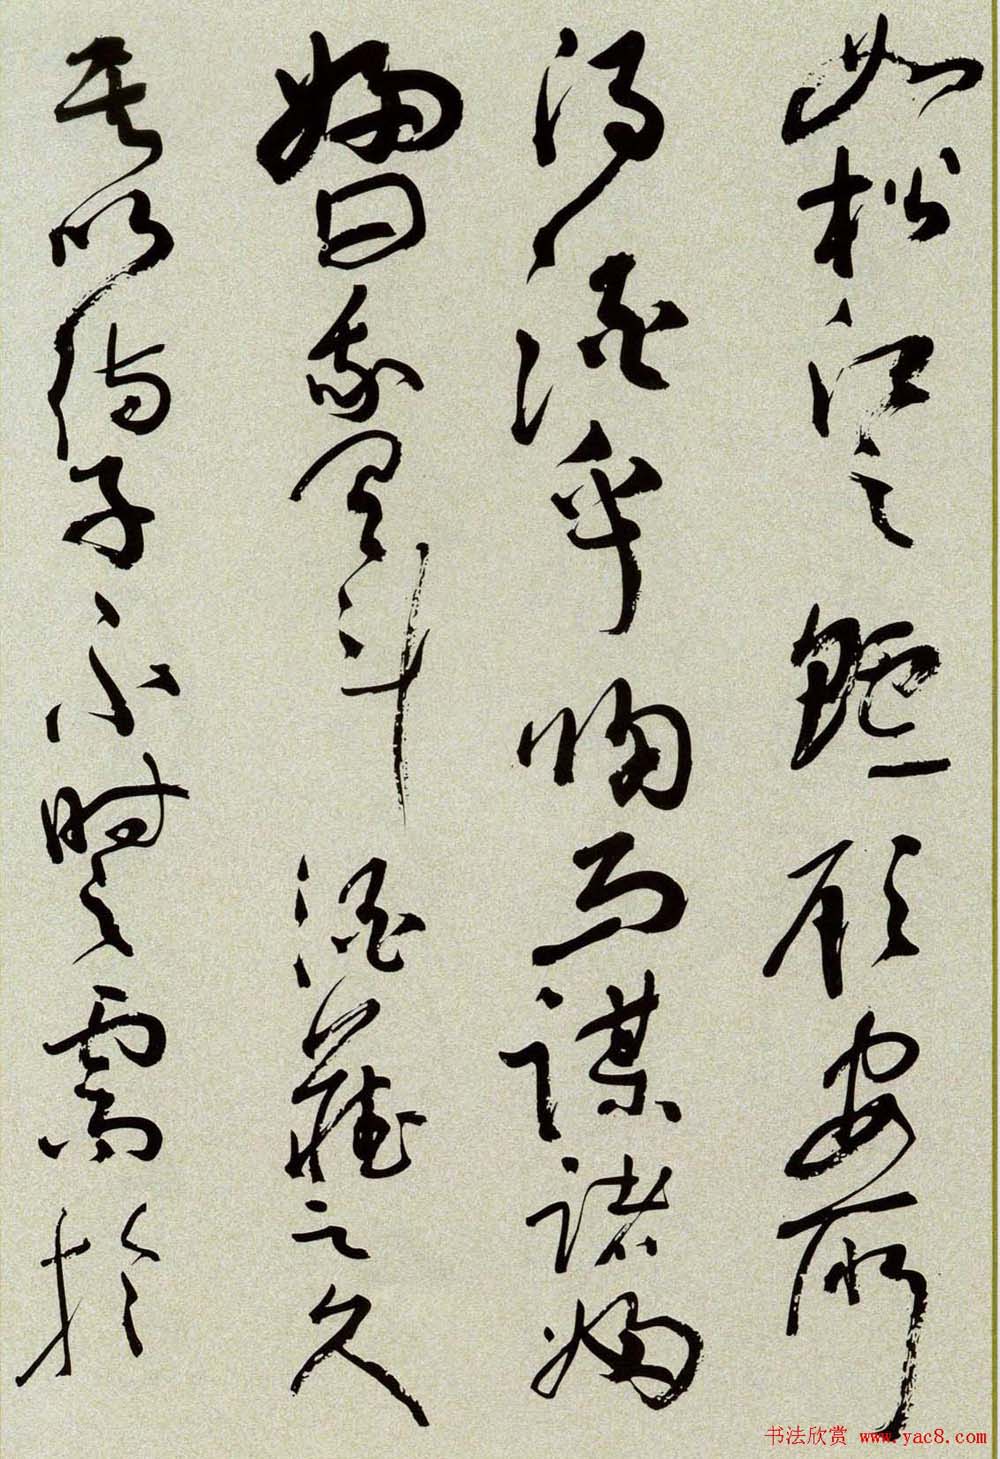 如松江之鱸顧安所
得酒乎歸而謀諸婦
婦曰我有斗酒藏之久
矣以待子不時之需於
书法欣赏 www.yac8.com